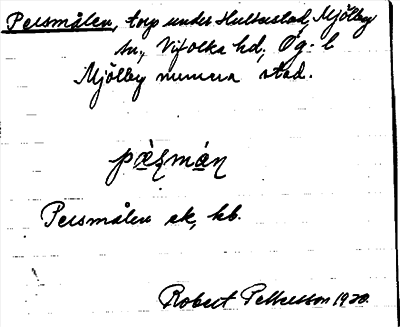 Persmålen, torp under Hulterstad, Mjölby
sn, Vifolka hd, Ög. l
Mjölby numera stad.
Persmålen ek, kb.
Robert Pettersson 1920.